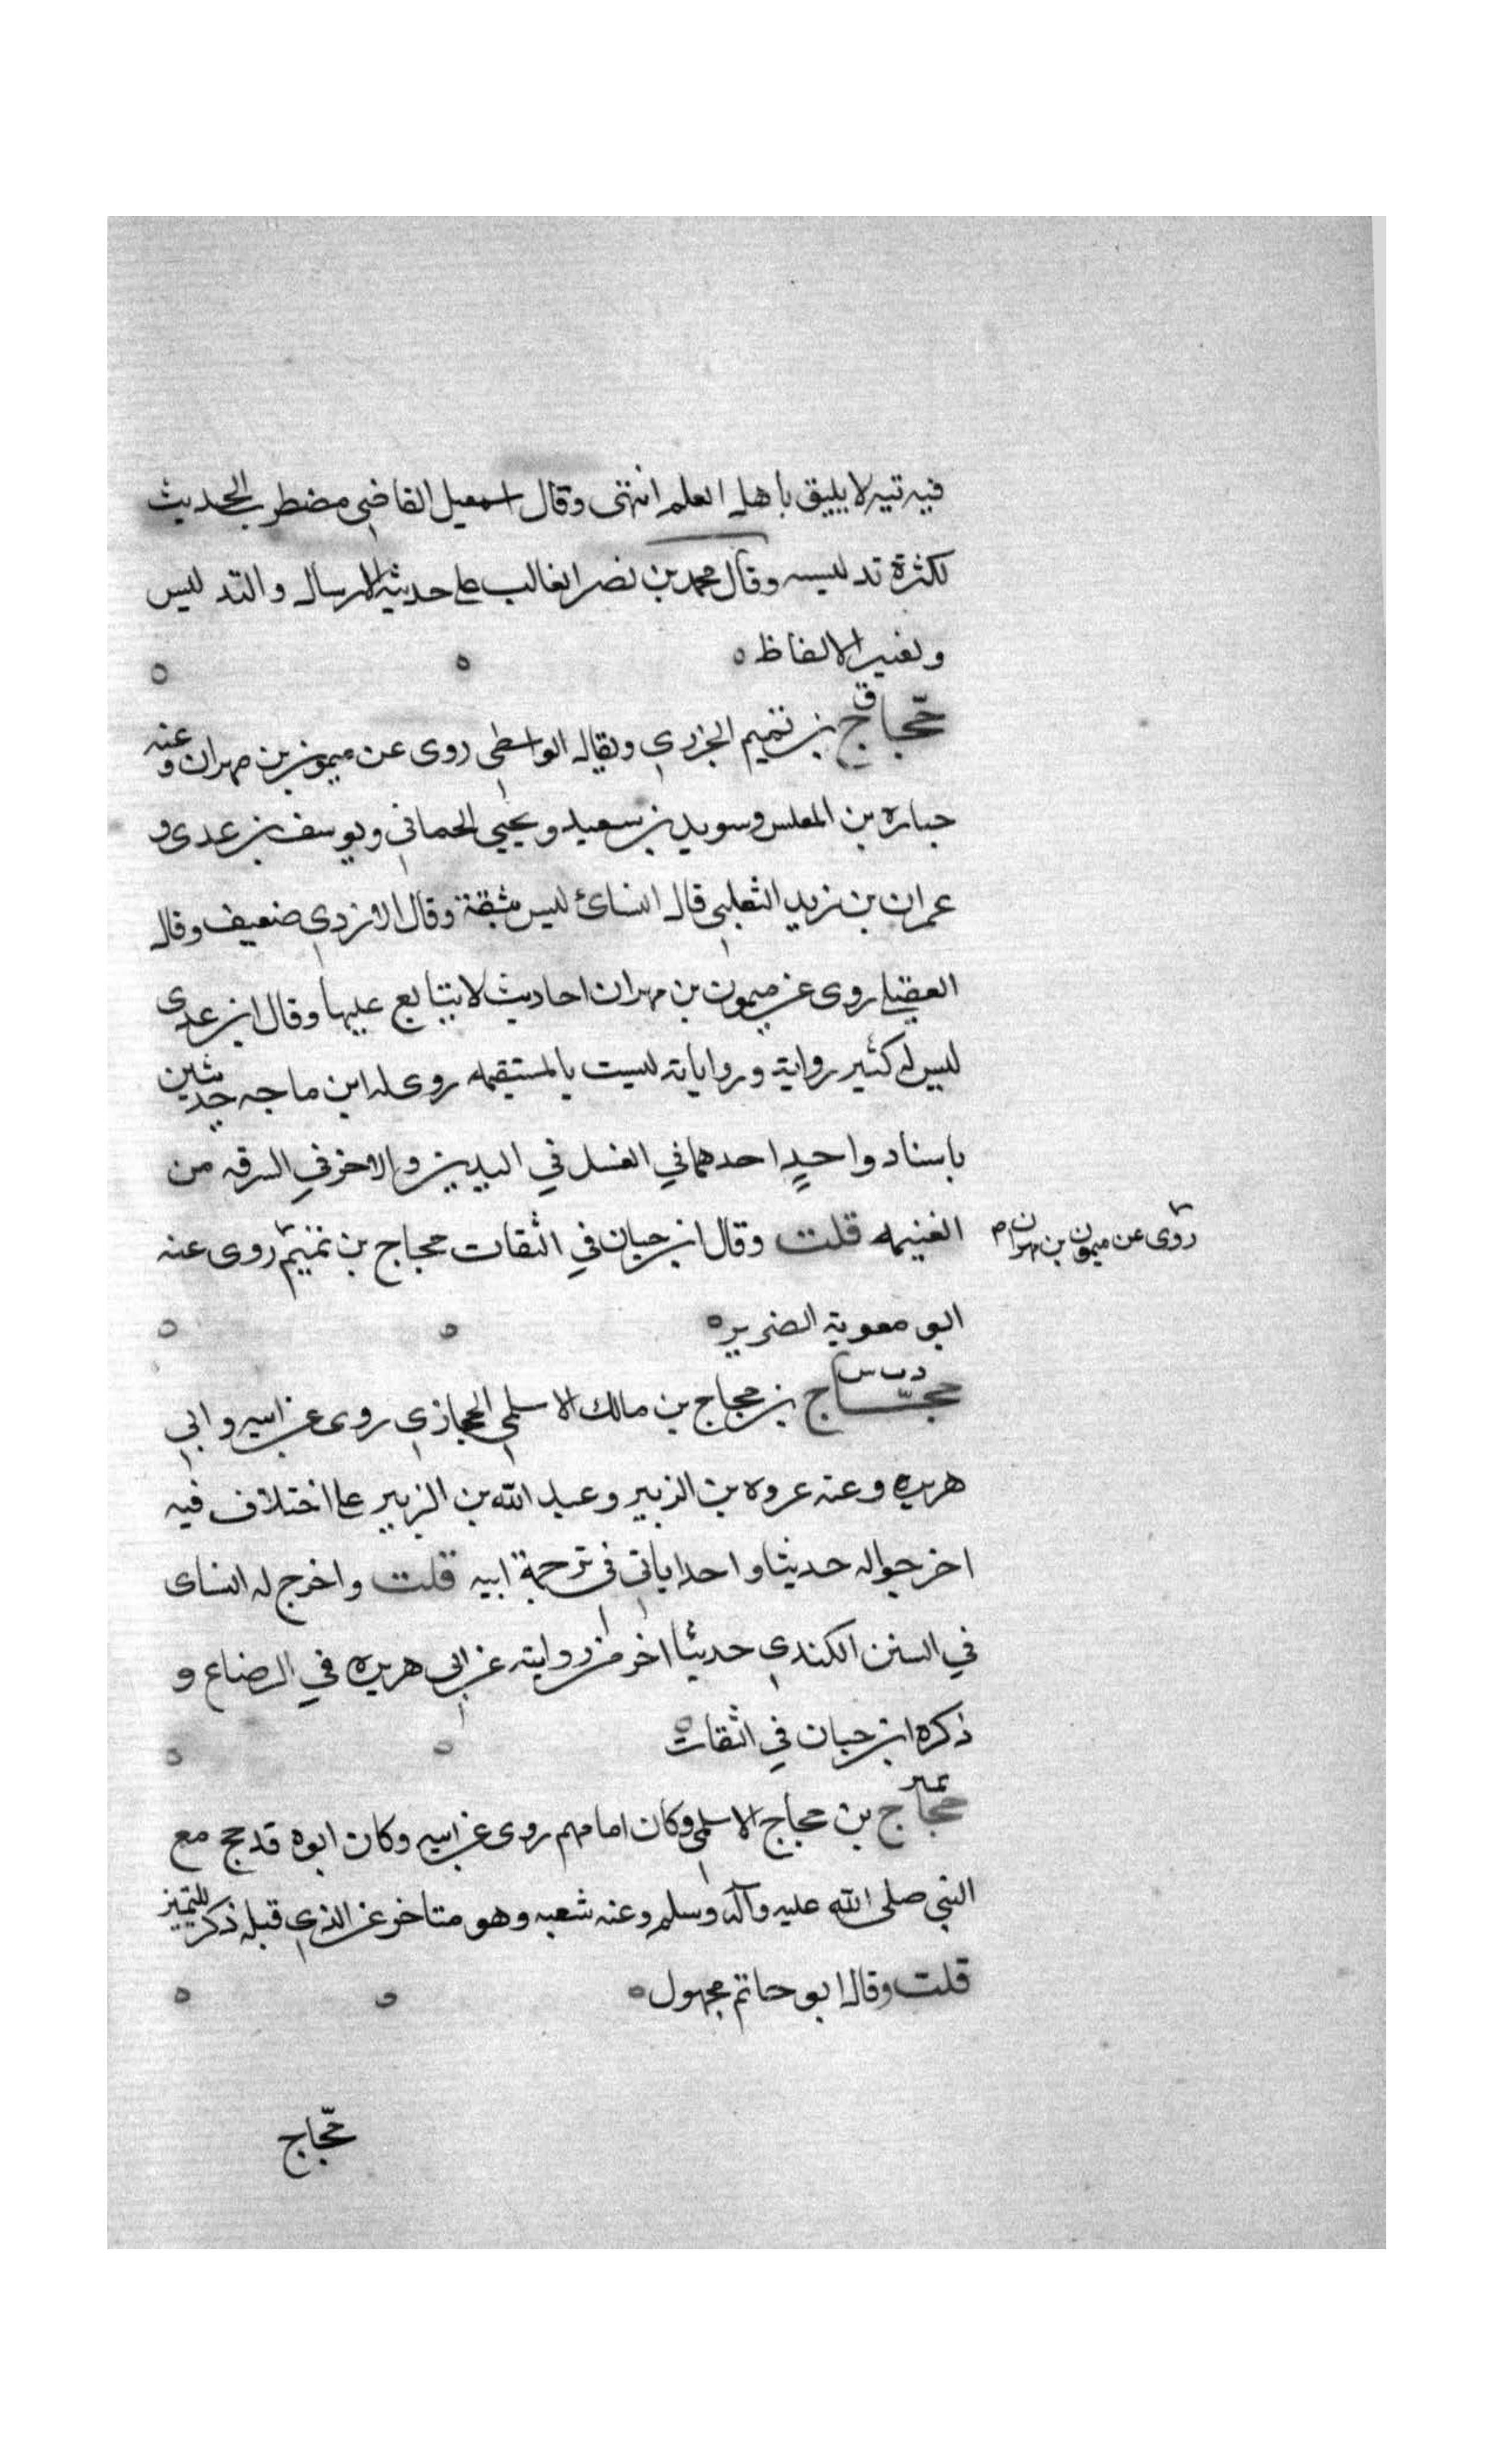 فيه تيه لا يليق باهل العلم انتهى وقال اسمعيل القاضي مضطرب الحديث
لكثرة تدليسه وقال محمد بن نصر الغالب على حديثه الارسال والتدليس
وتغيير الالفاظ ه ه ه
ق
حجاج بن تميم الجزري ويقال الواسطي روى عن ميمون بن مهران وعنه
جباره بن المغلس وسويد بن سعيد ويحيى الحماني ويوسف بن عدى و
عمران بن زيد الثعلبي قال النسائ ليس بثقة وقال الازدي ضعيف وقال
العقيلي روى عن ميمون بن مهران احاديث لا يتابع عليها وقال ابن عدى
ليس له كثير رواية ورواياته ليست بالمستقيمه روى له ابن ماجه حديثين
باسناد واحدٍ احدهما في الغسل في العيدين والاخر في السرقه من
الغنيمه قلت وقال ابن حبان في الثقات حجاج بن تميم روى عنه
روى عن ميمون بن مهران م
ابو معوية الضرير ه ه ه
د ت س
حجاج بن حجاج بن مالك الاسلمي الحجازي روى عن ابيه وابي
هريره وعنه عروه بن الزبير وعبد الله بن الزبير على اختلاف فيه
اخرجوا له حديثا واحدا ياتي في ترجمة ابيه قلت واخرج له النساى
في السنن الكندي حديثا اخر من روايته عن ابي هريره في الرضاع و
ذكره ابن حبان في الثقات ه ه ه
تمييز
حجاج بن حجاج الاسلمي وكان امامهم روى عن ابيه وكان ابوه قد حج مع
النبي صلى الله عليه وآله وسلم وعنه شعبه وهو متاخر عن الذي قبله ذكر للتمييز
قلت وقال ابو حاتم مجهول ه ه ه
حجاج